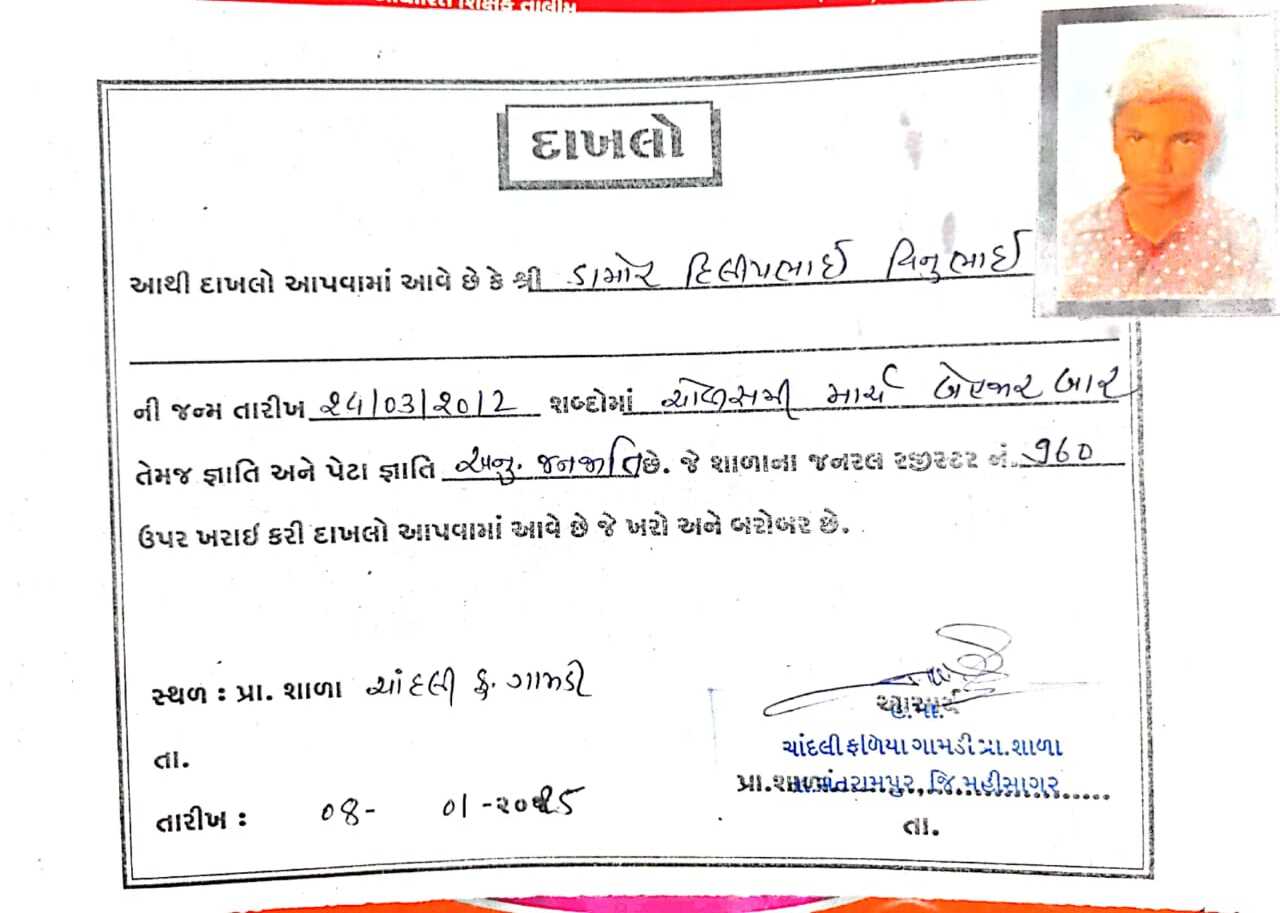 શિક્ષક તાલીમ
દાખલો
આથી દાખલો આપવામાં આવે છે કે શ્રી ડામોર દિલીપભાઈ વિનુભાઈ
ની જન્મ તારીખ 24/03/2012 શબ્દોમાં ચોવીસમી માર્ચ બેહજાર બાર
તેમજ જ્ઞાતિ અને પેટા જ્ઞાતિ અનુ. જનજાતિ છે. જે શાળાના જનરલ રજીસ્ટર નં. 960
ઉપર ખરાઈ કરી દાખલો આપવામાં આવે છે જે ખરો અને બરોબર છે.
સ્થળ : પ્રા. શાળા ચાંદલી ફ. ગામડી
આચાર્ય
ચાંદલી ફળિયા ગામડી પ્રા. શાળા
તા.
પ્રા.શાળા સંતરામપુર, જિ.મહીસાગર.....
તારીખ : 08- 01-2025
તા.